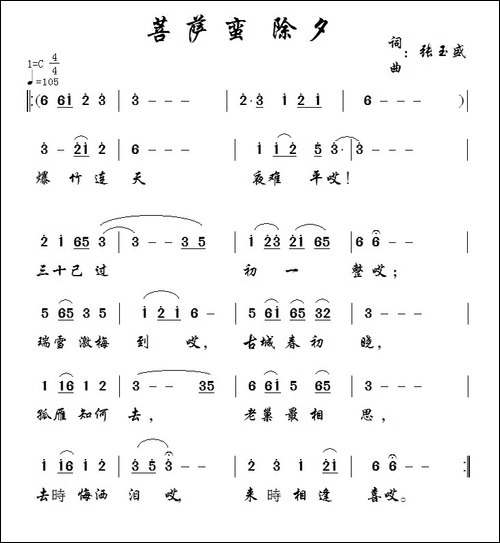 菩萨蛮 除夕
词
曲 : 张玉盛
1=C 4/4
♩=105
‖:(6 6i 2 3 | 3 - - - | 2·3 i i 2 i | 6 - - - )|
3 - 2i 2 | 6 - - - | i i 2 5 3· | 3 - - - |
爆竹连天 夜难平哎!
2 i 65 3 | 3 - - 3 5 | i 23 2i 65 | 6 6 - - |
三十已过 初一整哎;
5 65 3 5 | i 2 i 6 - | 5 6i 65 32 | 3 - - - |
瑞雪激梅到哎, 古城春初晓,
1 16 1 2 | 3 - - 35 | 6 6i 5 65 | 3 - - - |
孤雁知何去, 老巢最相思,
i i6 i 2 | 3 5 3 - | 2 3 i 2i | 6 6 - - :‖
去時悔洒泪哎, 来時相逢喜哎。